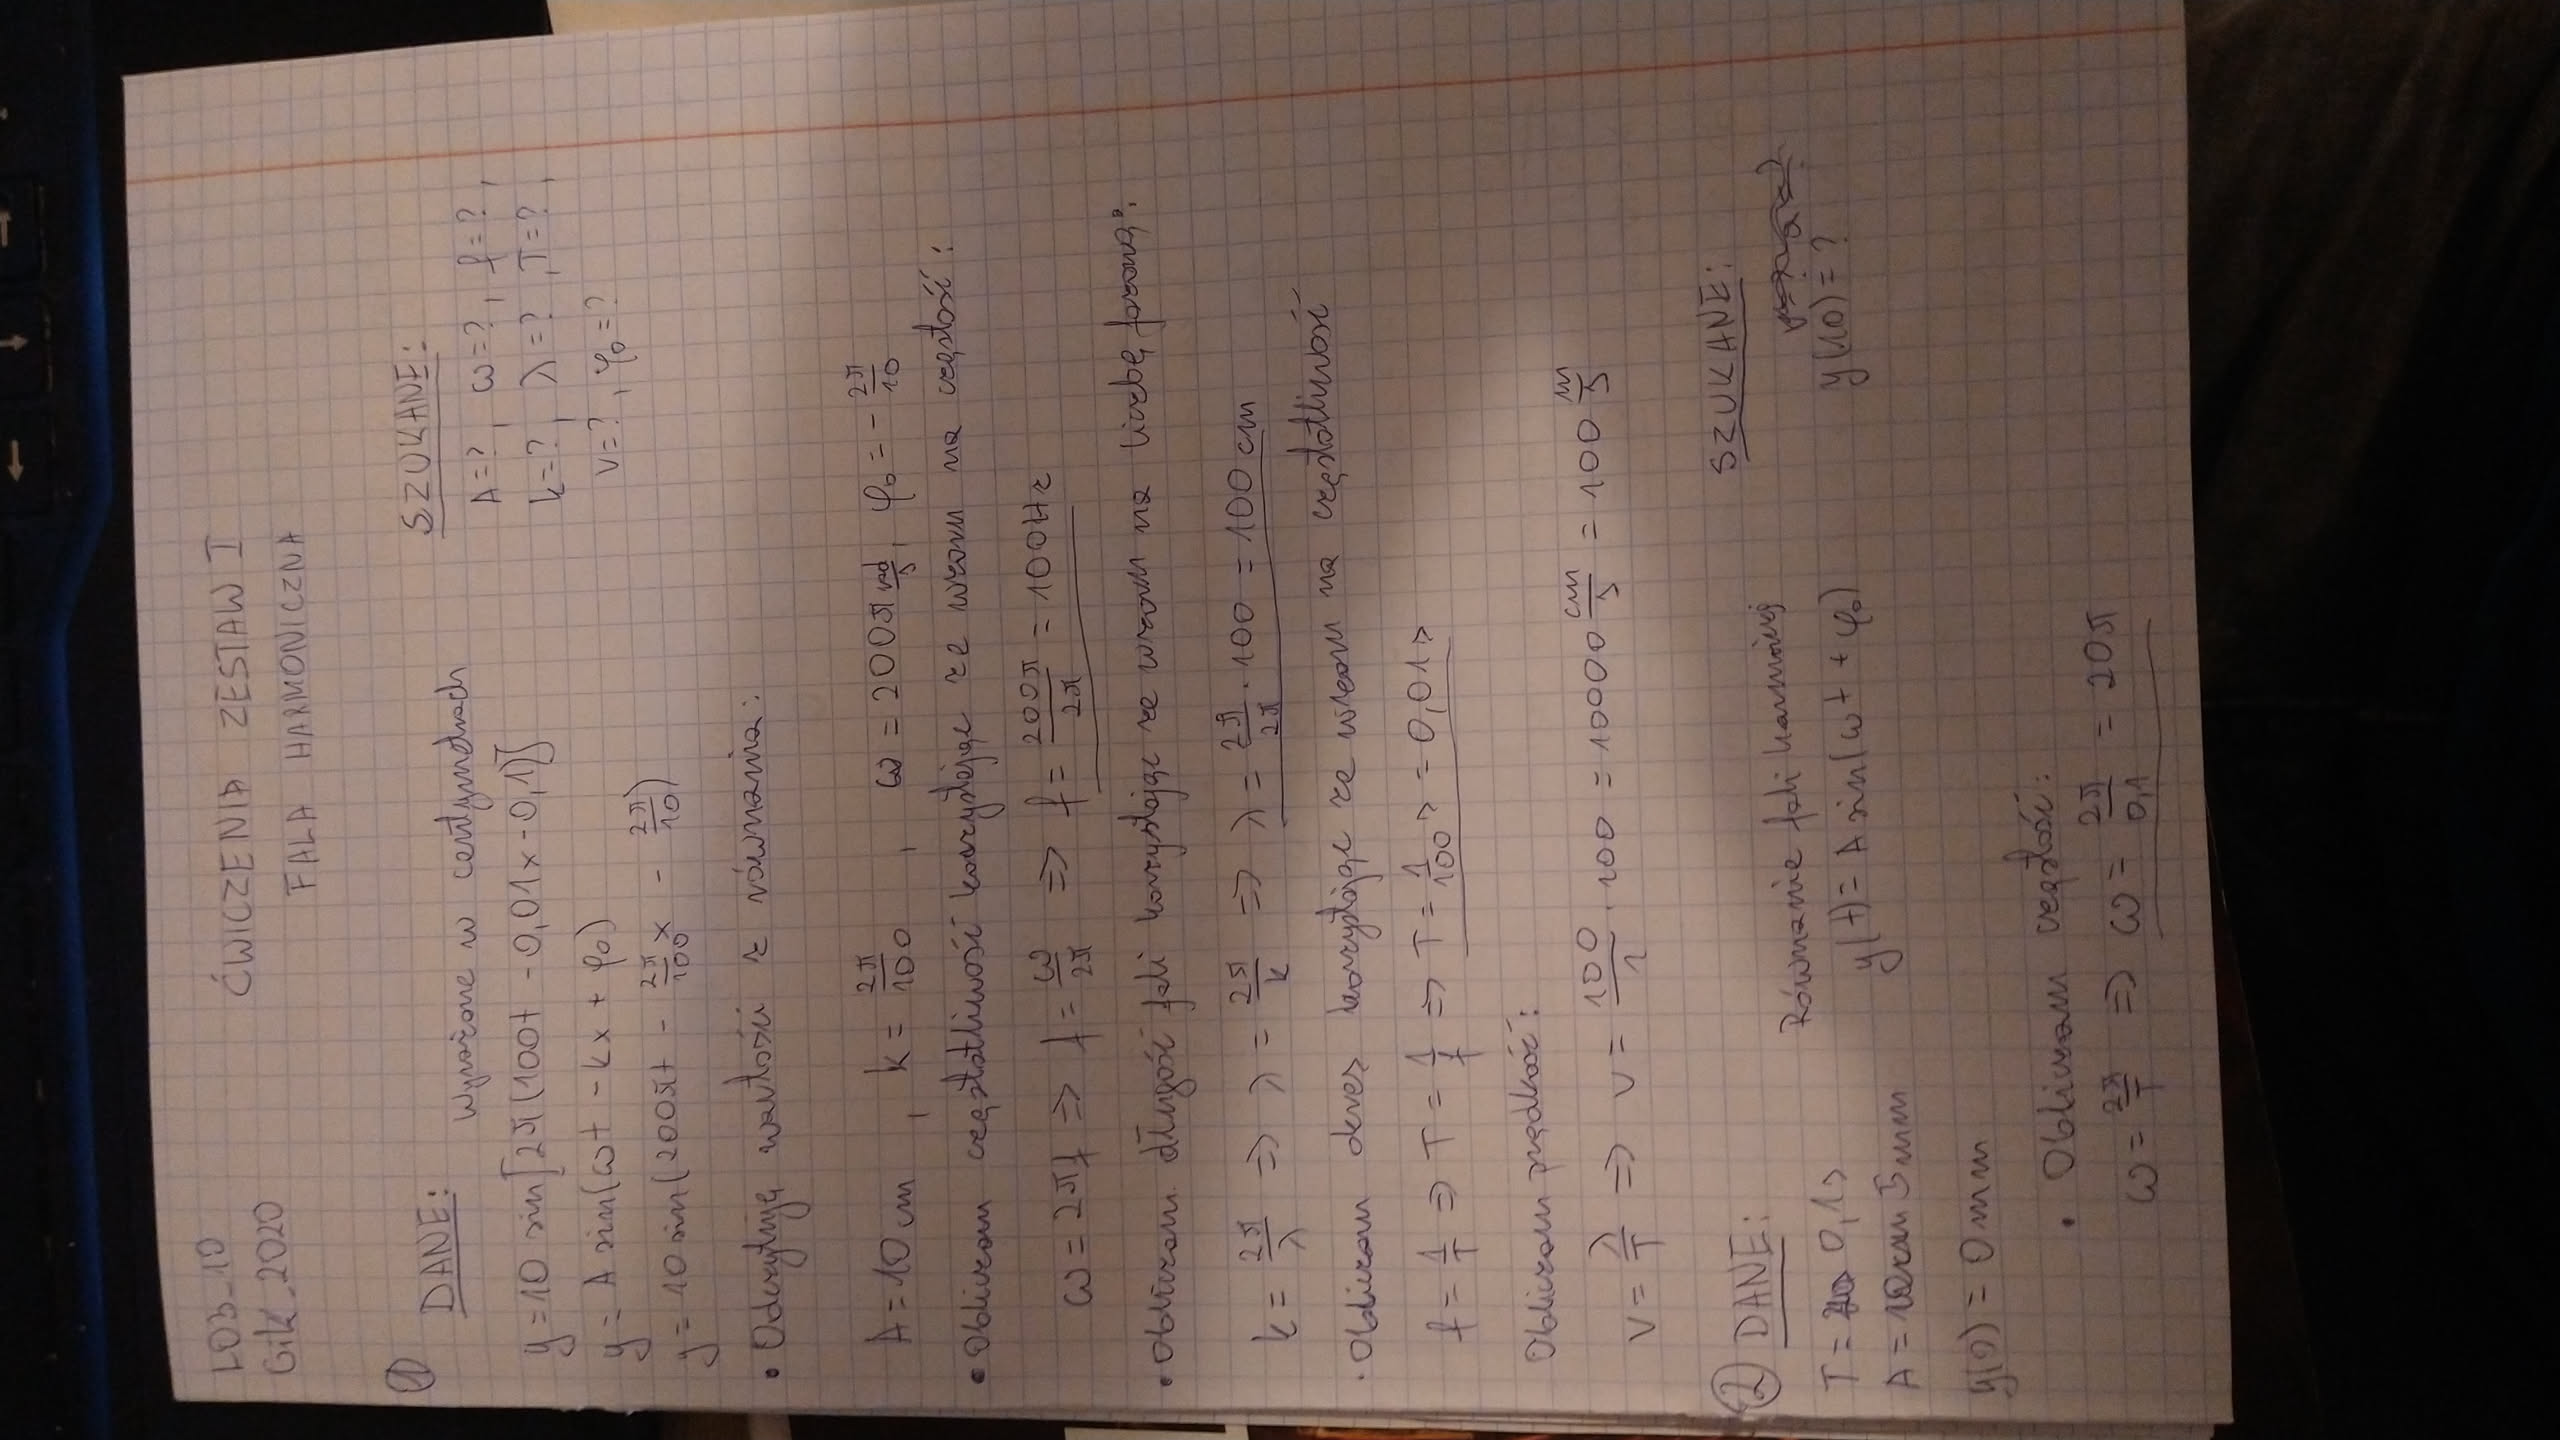 LO3_10
GiK_2020
ĆWICZENIA ZESTAW I
FALA HARMONICZNA
①
DANE:
wyrażone w centymetrach
SZUKANE:
y = 10 sin[2π(100t - 0,01x - 0,1)]
A=?, ω=?, f=?,
y = A sin(ωt - kx + φ₀)
k=?, λ=?, T=?,
y = 10 sin(200πt - 2π/100 x - 2π/10)
v=?, φ₀=?
• Odczytuję wartości z równania:
A = 10 cm, k = 2π/100, ω = 200π rad/s, φ₀ = - 2π/10
• Obliczam częstotliwość korzystając ze wzoru na częstość:
ω = 2πf => f = ω/2π => f = 200π/2π = 100Hz
• Obliczam długość fali korzystając ze wzoru na liczbę falową:
k = 2π/λ => λ = 2π/k => λ = 2π/2π · 100 = 100 cm
• Obliczam okres korzystając ze wzoru na częstotliwość
f = 1/T => T = 1/f => T = 1/100 s = 0,01s
Obliczam prędkość:
v = λ/T => v = 100/1 · 100 = 10000 cm/s = 100 m/s
② DANE:
SZUKANE:
T = 0,1s
Równanie fali
A = 5mm
y(t) = A sin(ωt + φ₀)
y(10) = ?
y(0) = 0mm
• Obliczam częstość:
ω = 2π/T => ω = 2π/0,1 = 20π